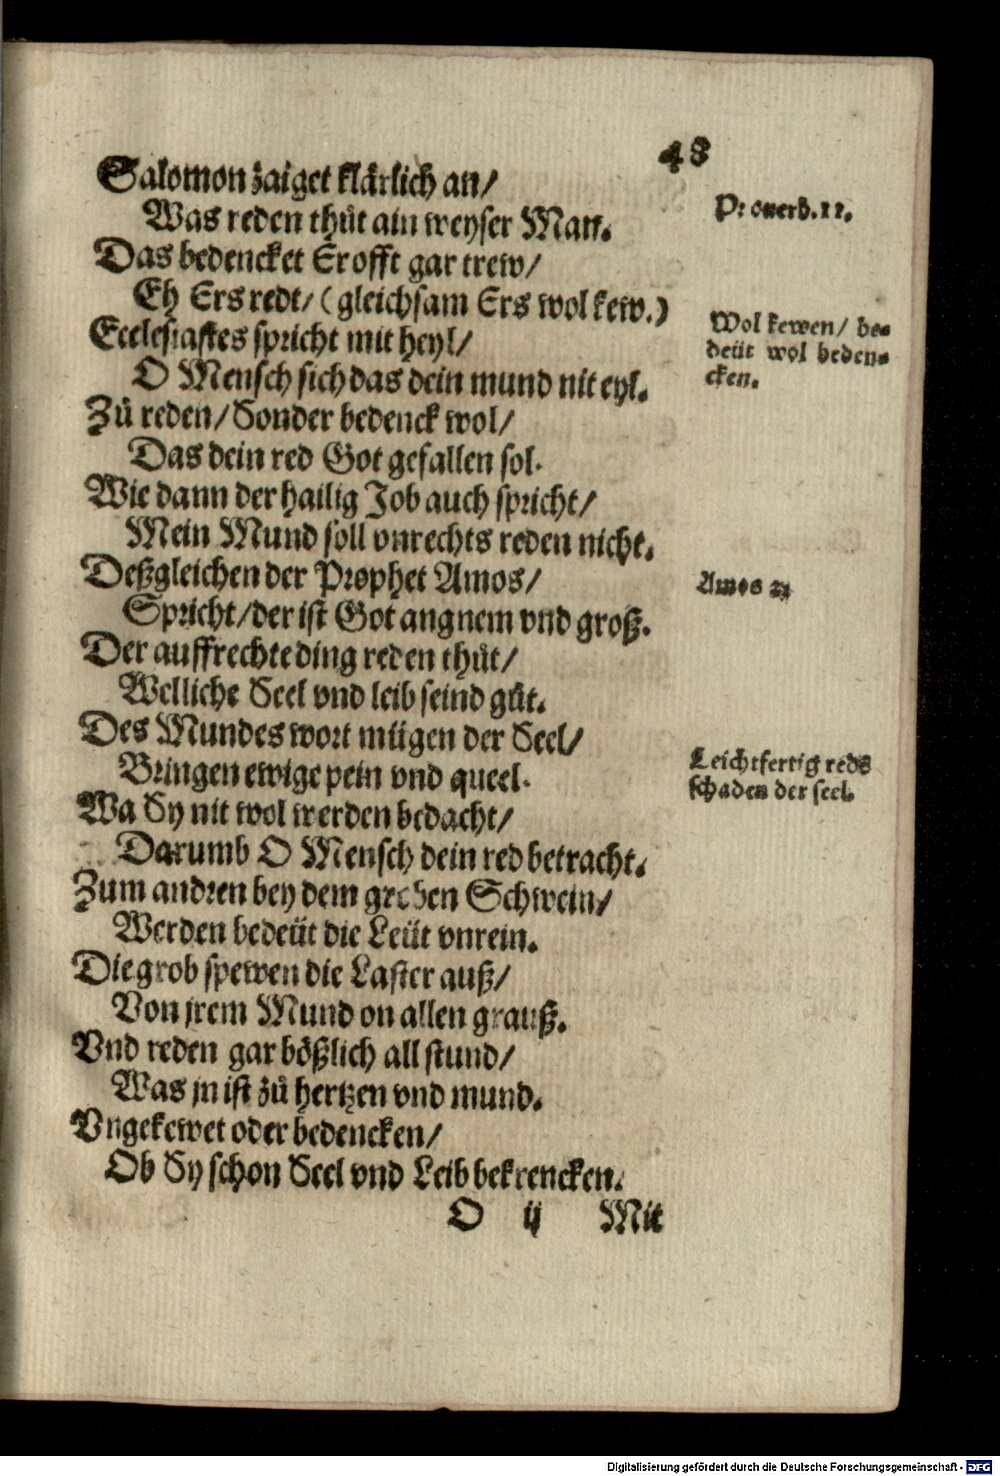 48
Salomon zaiget klärlich an/
Was reden thůt ain weyser Man.
Prouerb. 11.
Das bedencket Er offt gar trew/
Eh Ers redt/ (gleichsam Ers wol kew.)
Wol kewen/ be-
deüt wol beden-
cken.
Ecclesiastes spricht mit heyl/
O Mensch sich das dein mund nit eyl.
Zů reden/ Sonder bedenck wol/
Das dein red Got gefallen sol.
Wie dann der hailig Job auch spricht/
Mein Mund soll vnrechts reden nicht.
Deßgleichen der Prophet Amos/
Amos
Spricht/ der ist Got angnem vnd groß.
Der auffrechte ding reden thůt/
Welliche Seel vnd leib seind gůt.
Des Mundes wort mügen der Seel/
Bringen ewige pein vnd queel.
Leichtfertig reds
schaden der seel.
Wa Sy nit wol werden bedacht/
Darumb O Mensch dein red betracht.
Zum andren bey dem groben Schwein/
Werden bedeüt die Leüt vnrein.
Die grob spewen die Laster auß/
Von jrem Mund on allen grauß.
Vnd reden gar bößlich all stund/
Was jn ist zů hertzen vnd mund.
Vngekewet oder bedencken/
Ob Sy schon Seel vnd Leib bekrencken.
O ij Mit
Digitalisierung gefördert durch die Deutsche Forschungsgemeinschaft - DFG